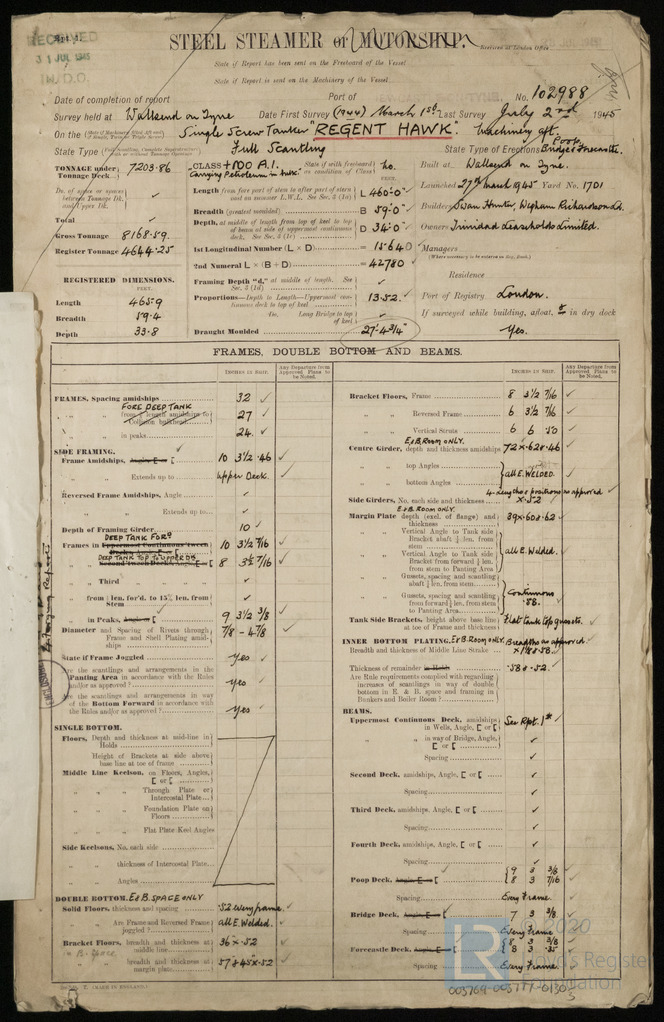 RECEIVED
31 JUL 1945
IN D.O.
STEEL STEAMER or MOTORSHIP.
Received at London Office
State if Report has been sent on the Freeboard of the Vessel
State if Report is sent on the Machinery of the Vessel
Date of completion of report
Port of
No. 102988
Survey held at Wallsend on Tyne Date First Survey (1944) March 1st Last Survey July 2nd 1945
On the Single Screw Tanker "REGENT HAWK". Machinery aft.
State Type Full Scantling
State Type of Erections Poop Bridge & Forecastle.
TONNAGE under Tonnage Deck 7203.86
Do. of space or spaces between Tonnage Dk. and Upper Dk. ✓
Total ✓
Gross Tonnage 8168.59
Register Tonnage 4644.25
REGISTERED DIMENSIONS.
FEET.
Length 465.9
Breadth 59.4
Depth 33.8
CLASS +100 A.1. State if with freeboard as condition of Class no.
Carrying Petroleum in bulk
FEET.
Length from fore part of stem to after part of stern post on summer L.W.L. See Sec. 3 (1a) L 460'-0"
Breadth (greatest moulded) B 59'-0"
Depth, at middle of length from top of keel to top of beam at side of uppermost continuous deck. See Sec. 3 (1c) D 34'-0"
1st Longitudinal Number (L × D) = 15640
2nd Numeral L × (B + D) = 42780
Framing Depth "d," at middle of length. See Sec. 3 (1d) ✓
Proportions—Depth to Length—Uppermost continuous Deck to top of keel 13.52 ✓
Do. Long Bridge to top of keel ✓
Draught Moulded 27'-4¾"
Built at Wallsend on Tyne.
Launched 27th March 1945 Yard No. 1701
Builders Swan Hunter, Wigham Richardson Ld.
Owners Trinidad Leaseholds Limited.
Managers
(Where necessary to be entered on Reg. Book.)
Residence
Port of Registry London.
If surveyed while building, afloat, or in dry dock
Yes.
FRAMES, DOUBLE BOTTOM AND BEAMS.
INCHES IN SHIP.
Any Departure from Approved Plans to be Noted.
FRAMES, Spacing amidships 32 ✓
FORE DEEP TANK
" " from ⅕ length amidships to Collision bulkhead 27 ✓
" " in peaks 24 ✓
SIDE FRAMING.
Frame Amidships, Angle, E or [ 10 3½ .46 ✓
" " Extends up to Upper Deck.
Reversed Frame Amidships, Angle ✓
" " Extends up to ✓
Depth of Framing Girder 10 ✓
DEEP TANK FORD
Frames in Uppermost Continuous 'tween Decks, Angle, E or [ 10 3½ 7/16 ✓
DEEP TANK TOP TO UPPER DK
" " Second 'tween Decks, Angle, E or [ 8 3½ 7/16 ✓
" " Third " " ✓
" " from ⅕ len. for'd. to 15% len. from Stem ✓
" " in Peaks, Angle or [ 9 3½ 3/8 ✓
Diameter and Spacing of Rivets through Frame and Shell Plating amidships 7/8 - 4 7/8 ✓
State if Frame Joggled Yes ✓
Are the scantlings and arrangements in the Panting Area in accordance with the Rules and/or as approved? Yes ✓
Are the scantlings and arrangements in way of the Bottom Forward in accordance with the Rules and/or as approved? Yes ✓
SINGLE BOTTOM.
Floors, Depth and thickness at mid-line in Holds
Height of Brackets at side above base line at toe of frame
Middle Line Keelson, on Floors, Angles, [ or [
" " Through Plate or Intercostal Plate
" " Foundation Plate on Floors
" " Flat Plate Keel Angles
Side Keelsons, No. each side
" " thickness of Intercostal Plate
" " Angles
DOUBLE BOTTOM. E & B. SPACE ONLY
Solid Floors, thickness and spacing .52 every frame ✓
" " Are Frame and Reversed Frame joggled? all E. Welded.
Bracket Floors, breadth and thickness at middle line 36 × .52 ✓
" " breadth and thickness at margin plate 57 & 45 × .52 ✓
Bracket Floors, Frame 8 3½ 7/16 ✓
" " Reversed Frame 6 3½ 7/16 ✓
" " Vertical Struts 6 6 .50 ✓
E & B. ROOM ONLY.
Centre Girder, depth and thickness amidships 72 × .62 & .46 ✓
" " top Angles
" " bottom Angles all E. WELDED.
Side Girders, No. each side and thickness 4-lengths & positions as approved × .52
E & B. ROOM ONLY.
Margin Plate depth (excl. of flange) and thickness 39 × .60 & .62 ✓
" " Vertical Angle to Tank Side Bracket abaft ⅕ len. from stem
" " Vertical Angle to Tank Side Bracket from forward ⅕ len. from stem to Panting Area all E. Welded. ✓
" " Gussets, spacing and scantling abaft ⅕ len. from stem
" " Gussets, spacing and scantling from forward ⅕ len. from stem to Panting Area Continuous .58. ✓
Tank Side Brackets, height above base line at toe of Frame and thickness Flat tank top gussets. ✓
INNER BOTTOM PLATING. E & B. ROOM ONLY.
Breadth and thickness of Middle Line Strake Breadths as approved
Thickness of remainder in Holds .58 & .52. ✓
Are Rule requirements complied with regarding increases of scantlings in way of double bottom in E. & B. space and framing in Bunkers and Boiler Room? ✓
BEAMS.
Uppermost Continuous Deck, amidships in Wells, Angle, [ or [ See Rpt. 1st ✓
" " in way of Bridge, Angle, [ or [ ✓
Spacing ✓
Second Deck, amidships, Angle, [ or [ ✓
Spacing ✓
Third Deck, amidships, Angle, [ or [ ✓
Spacing ✓
Fourth Deck, amidships, Angle, [ or [ ✓
Spacing ✓
Poop Deck, Angle, E or [ 9 3 3/8
8 3 7/16 ✓
Spacing Every Frame. ✓
Bridge Deck, Angle, E or [ 7 3 3/8. ✓
Spacing Every Frame ✓
Forecastle Deck, Angle, E or [ 8 3 3/8
8 3 .35 ✓
Spacing Every Frame. ✓
© 2020
Lloyd's Register
Foundation
(MADE IN ENGLAND.)